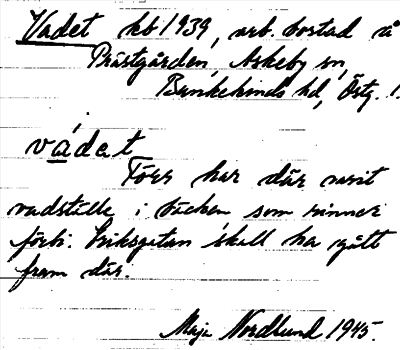 Vadet kb 1939, arb. bostad å
Prästgården, Askeby sn,
Bankekinds hd, Östg. l.
vádet
Förr har där varit
vadställe i bäcken som rinner
förbi. Eriksgatan skall ha gått
fram där.
Maja Nordlund 1945.